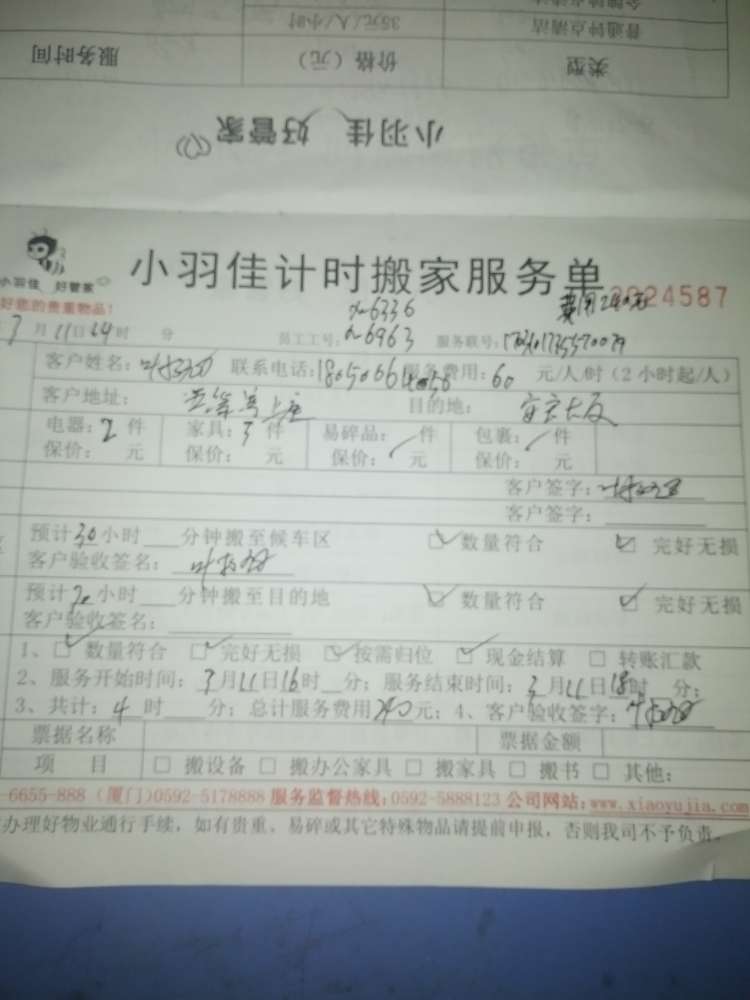 普通钟点清洁 35元/人/小时
类型 价格（元） 服务时间
小羽佳 好管家
小羽佳 好管家
小羽佳计时搬家服务单 2024587
好您的贵重物品！
6336 费用240元
3月11日14时 分 员工工号： 6963 服务联号：
客户姓名： 联系电话： 服务费用：60 元/人/时（2小时起/人）
客户地址： 目的地：
电器：2件 家具：3件 易碎品： 件 包裹： 件
保价： 元 保价： 元 保价： 元 保价： 元
客户签字：
客户签字：
预计30小时 分钟搬至候车区 数量符合 完好无损
客户验收签名：
预计 小时 分钟搬至目的地 数量符合 完好无损
客户验收签名：
1、 数量符合 完好无损 按需归位 现金结算 转账汇款
2、服务开始时间：3月11日16时 分；服务结束时间：3月11日18时 分；
3、共计：4时 分；总计服务费用240元；4、客户验收签字：
票据名称 票据金额
项 目 搬设备 搬办公家具 搬家具 搬书 其他：
6655-888（厦门)0592-5178888 服务监督热线：0592-5888123 公司网站：www.xiaoyujia.com
办理好物业通行手续，如有贵重、易碎或其它特殊物品请提前申报，否则我司不予负责。